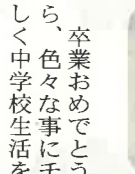 卒業おめでとう
ら、色々な事にチ
しく中学校生活を